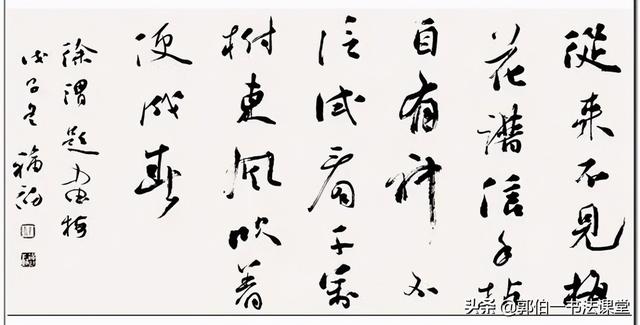 從来不見梅
花譜信手拈
自有神不
信試看千萬
樹東風吹着
便成春
徐渭題畫梅
戊子冬
头条 @郭伯一书法课堂